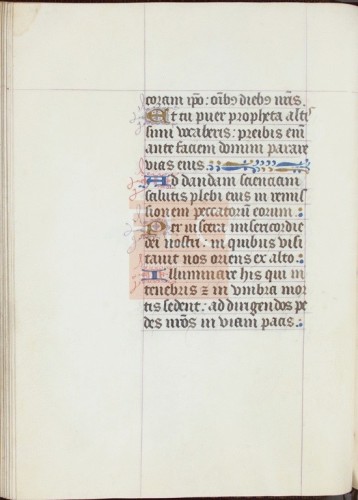 coram ipo: oib9 dieb9 nris.
Et tu puer propheta alti
simi vocaberis: preibis eni
ante faciem domini parare
vias eius.
Ad dandam scienciam
salutis plebi eius in remis
sionem peccatoru eorum:
Per viscera misericordie
dei nostri: in quibus visi
tavit nos oriens ex alto.
Illuminare his qui in
tenebris z in vmbra mor
tis sedent: ad dirigendos pe
des nros in viam pacis: